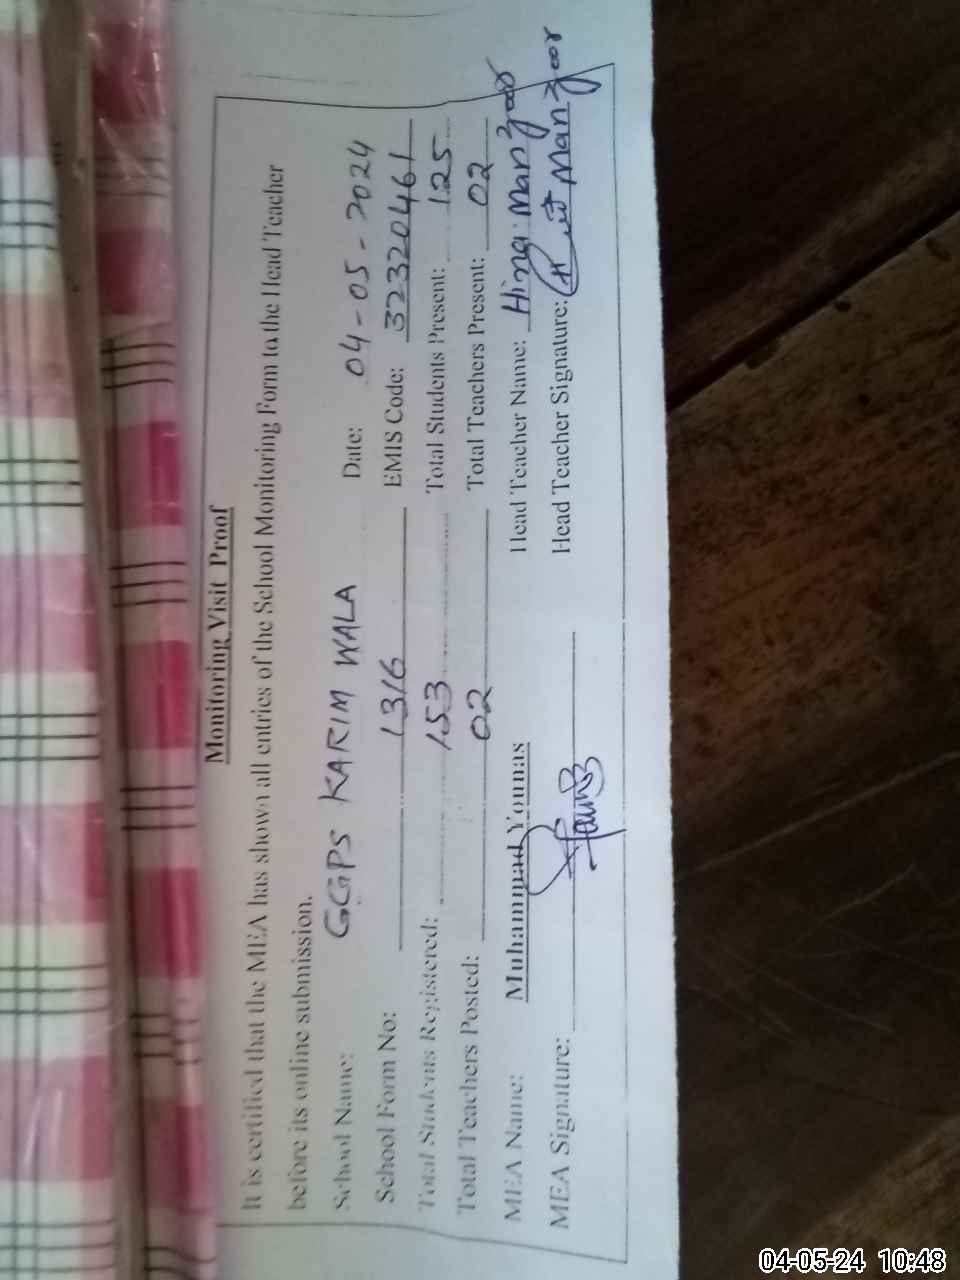 Monitoring Visit Proof
It is certified that the MEA has shown all entries of the School Monitoring Form to the Head Teacher
before its online submission.
School Name: GGPS KARIM WALA Date: 04-05-2024
School Form No: 1316 EMIS Code: 32320461
Total Students Registered: 153 Total Students Present: 125
Total Teachers Posted: 02 Total Teachers Present: 02
MEA Name: Muhammad Younas Head Teacher Name: Hina Manzoor
MEA Signature: Head Teacher Signature: Manzoor
04-05-24 10:48